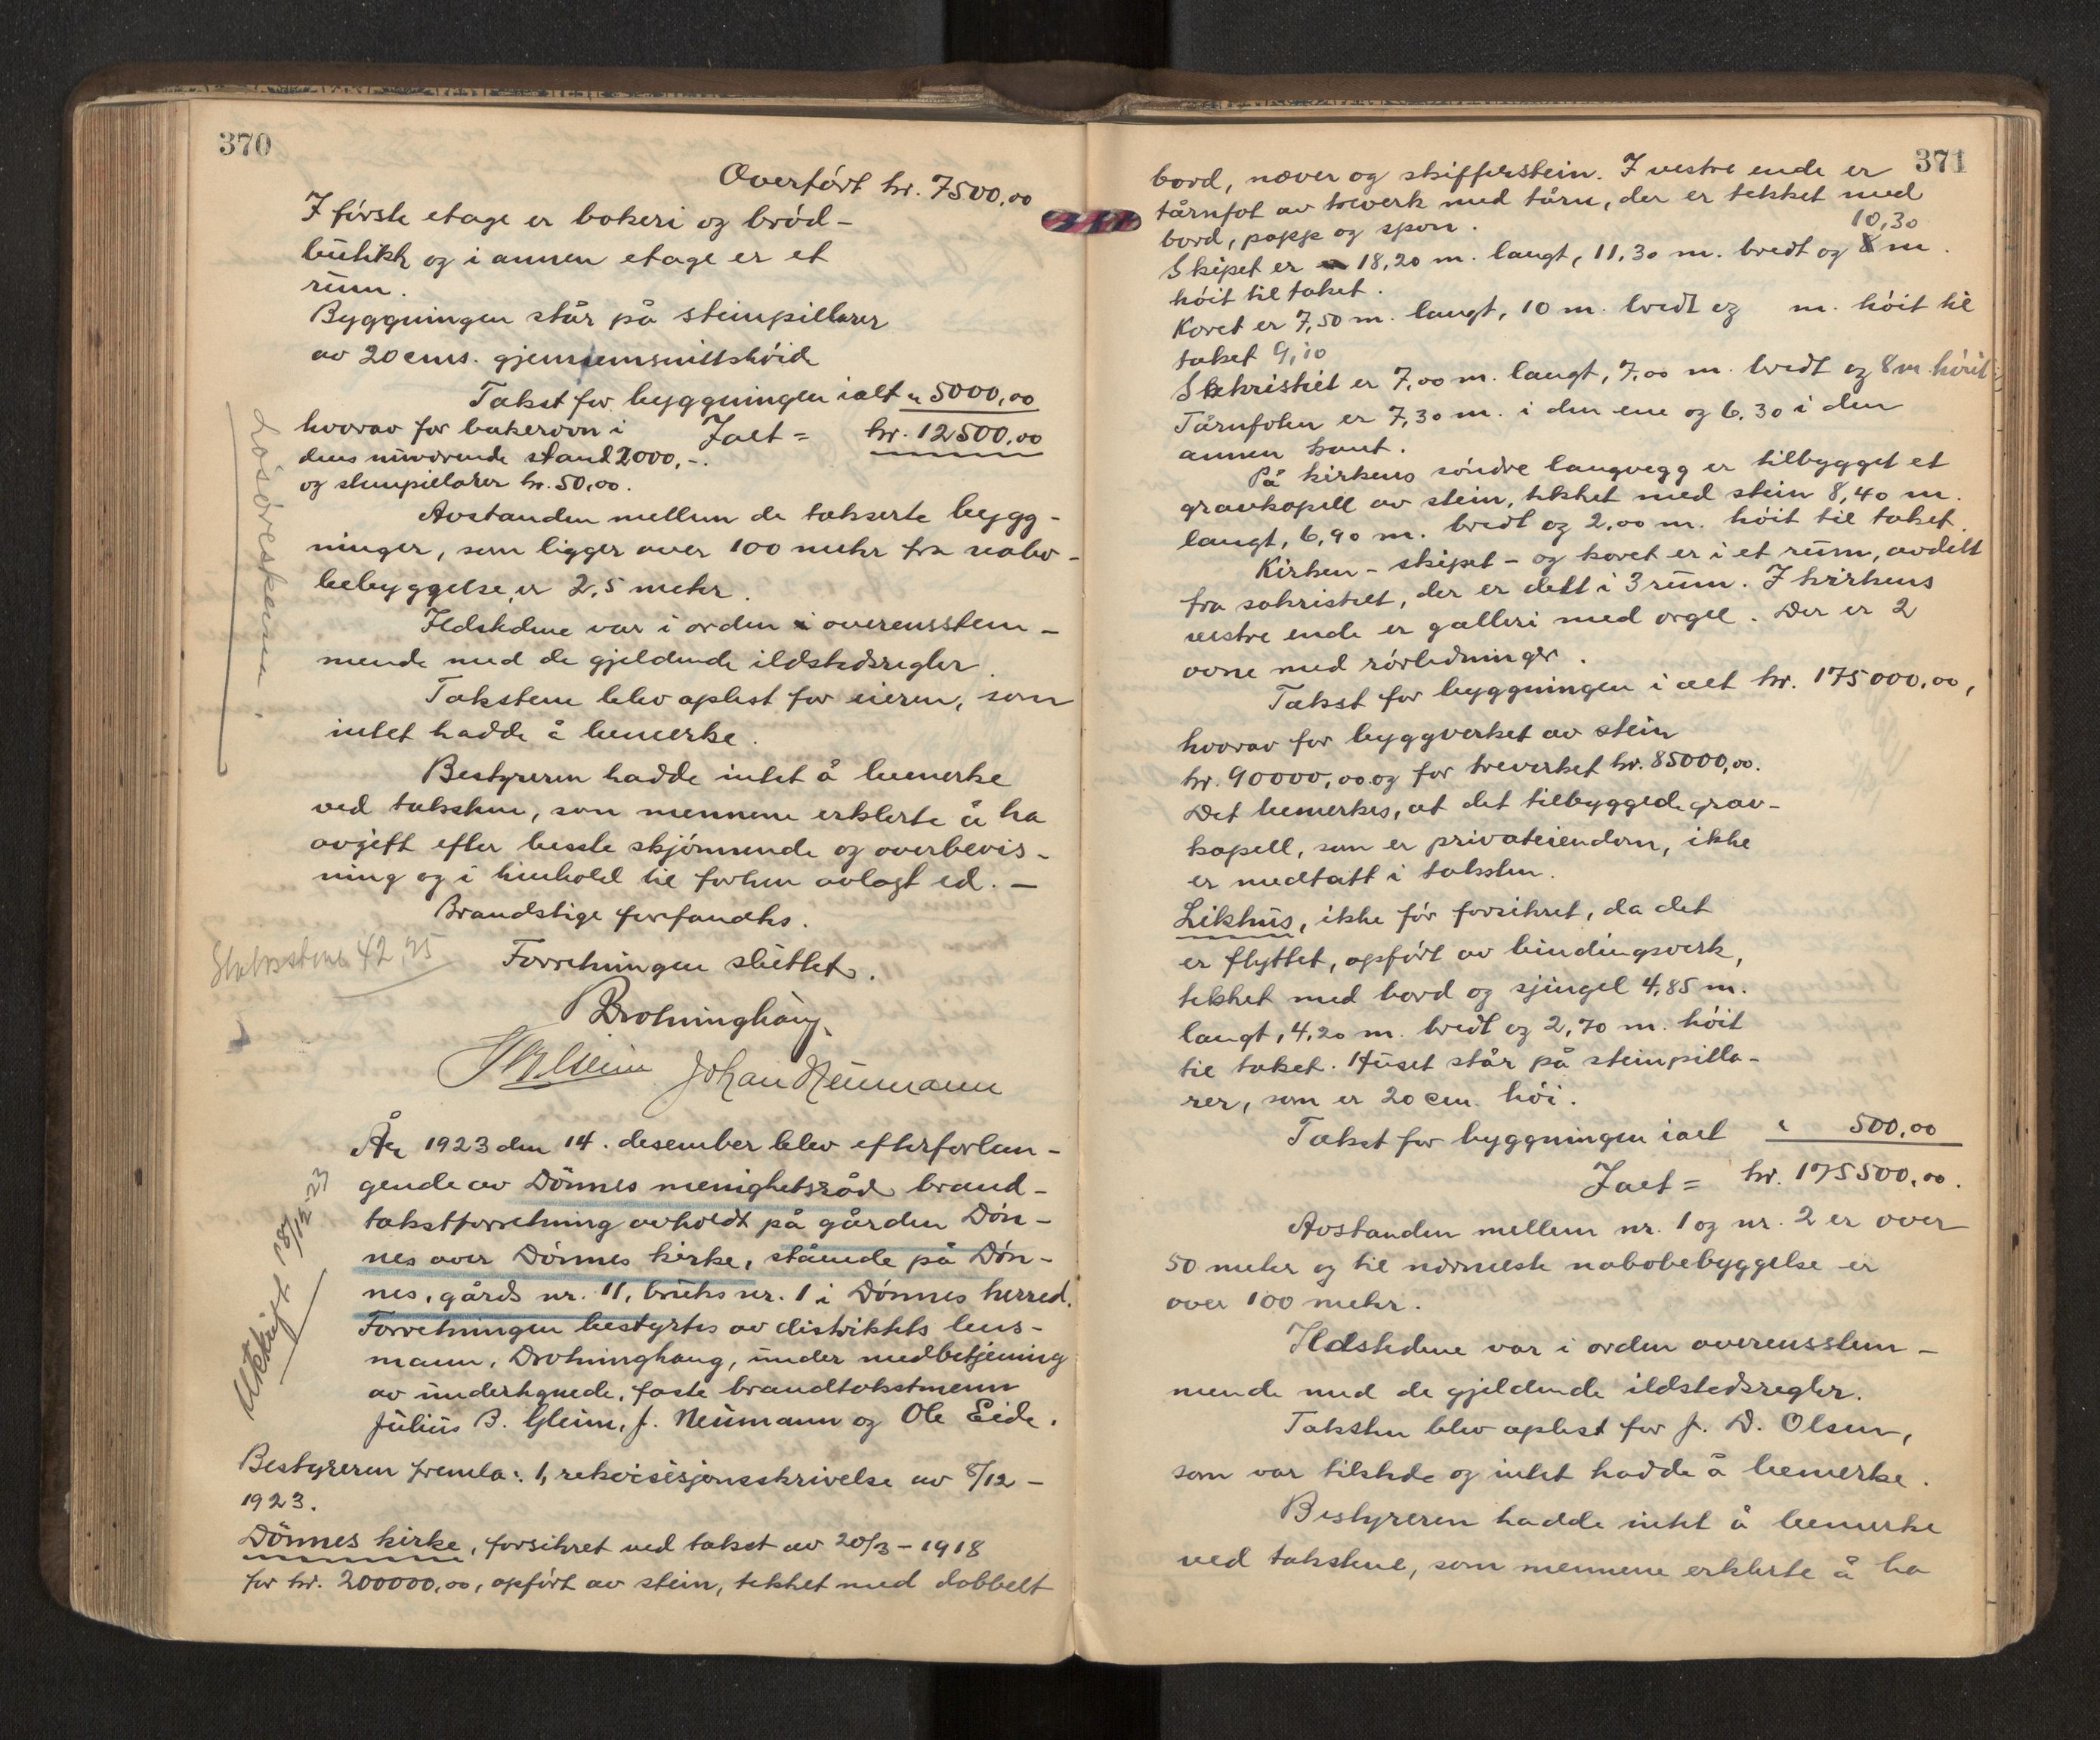 370
Overført kr. 7500,00
I første etage er bakeri og brød-
butikk og i annen etage er et
rum.
Byggningen står på steinpillarer
av 20 cms. gjennemsnittshøide
Takst for byggningen ialt " 5000,00
hvorav for bakerovn i Ialt = kr. 12500,00
dens nuværende stand 2000,-.
og steinpillarer kr. 50,00.
Avstanden mellem de takserte bygg-
ninger, som ligger over 100 meter fra nabo-
bebyggelse, er 2,5 meter.
Ildstedene var i orden i overensstem-
mende med de gjeldende ildstedsregler.
Takstene blev oplest for eieren, som
intet hadde å bemerke.
Bestyreren hadde intet å bemerke
ved takstene, som mennene erklerte å ha
avgitt efter beste skjønnende og overbevis-
ning og i henhold til forhen avlagt ed. -
Brandstige forefandtes.
42,75
Forretningen sluttet.
Drotninghaug.
Johan Neumann
År 1923 den 14. desember blev efter forlan-
gende av Dønnes menighetsråd brand-
takstforretning avholdt på gården Døn-
nes over Dønnes kirke, stående på Døn-
nes, gårds nr. 11, bruks nr. 1 i Dønnes herred.
Forretningen bestyrtes av distriktets lens-
mann, Drotninghaug, under medbetjening
av undertegnede, faste brandtakstmenn
Julius B. Gleim, J. Neumann og Ole Eide.
Utskrift 18/12-23
Bestyreren fremla: 1, rekvisisjonsskrivelse av 8/12-
1923.
Dønnes kirke, forsikret ved takst av 20/3-1918
for kr. 200000,00, opført av stein, tekket med dobbelt
371
bord, næver og skifferstein. I vestre ende er
tårnfot av treverk med tårn, der er tekket med
bord, papp og spon.
10,30
Skipet er 18,20 m. langt, 11,30 m. bredt og 8 m.
høit til taket.
Koret er 7,50 m. langt, 10 m. bredt og m. høit til
taket 9,10
Sakristiet er 7,00 m. langt, 7,00 m. bredt og 8 m høit
Tårnfoten er 7,30 m. i den ene og 6,30 i den
annen kant.
På kirkens søndre langvegg er tilbygget et
gravkapell av stein, tekket med stein 8,40 m.
langt, 6,90 m. bredt og 2,00 m. høit til taket.
Kirken - skipet - og koret er i et rum, avdelt
fra sakristiet, der er delt i 3 rum. I kirkens
vestre ende er galleri med orgel. Der er 2
ovne med rørledninger.
Takst for byggningen i alt kr. 175000,00,
hvorav for byggverket av stein
kr. 90000,00 og for treverket kr. 85000,00.
Det bemerkes, at det tilbyggede grav-
kapell, som er privateiendom, ikke
er medtatt i taksten.
Likhus, ikke før forsikret, da det
er flyttet, opført av bindingsverk,
tekket med bord og sjingel 4,85 m.
langt, 4,20 m. bredt og 2,70 m. høit
til taket. Huset står på steinpilla-
rer, som er 20 cm. høi.
Takst for byggningen ialt " 500,00
Ialt = kr. 175500,00.
Avstanden mellem nr. 1 og nr. 2 er over
50 meter og til nærmeste nabobebyggelse er
over 100 meter.
Ildstedene var i orden overensstem-
mende med de gjeldende ildstedsregler.
Taksten blev oplest for J. D. Olsen,
som var tilstede og intet hadde å bemerke.
Bestyreren hadde intet å bemerke
ved takstene, som mennene erklerte å ha